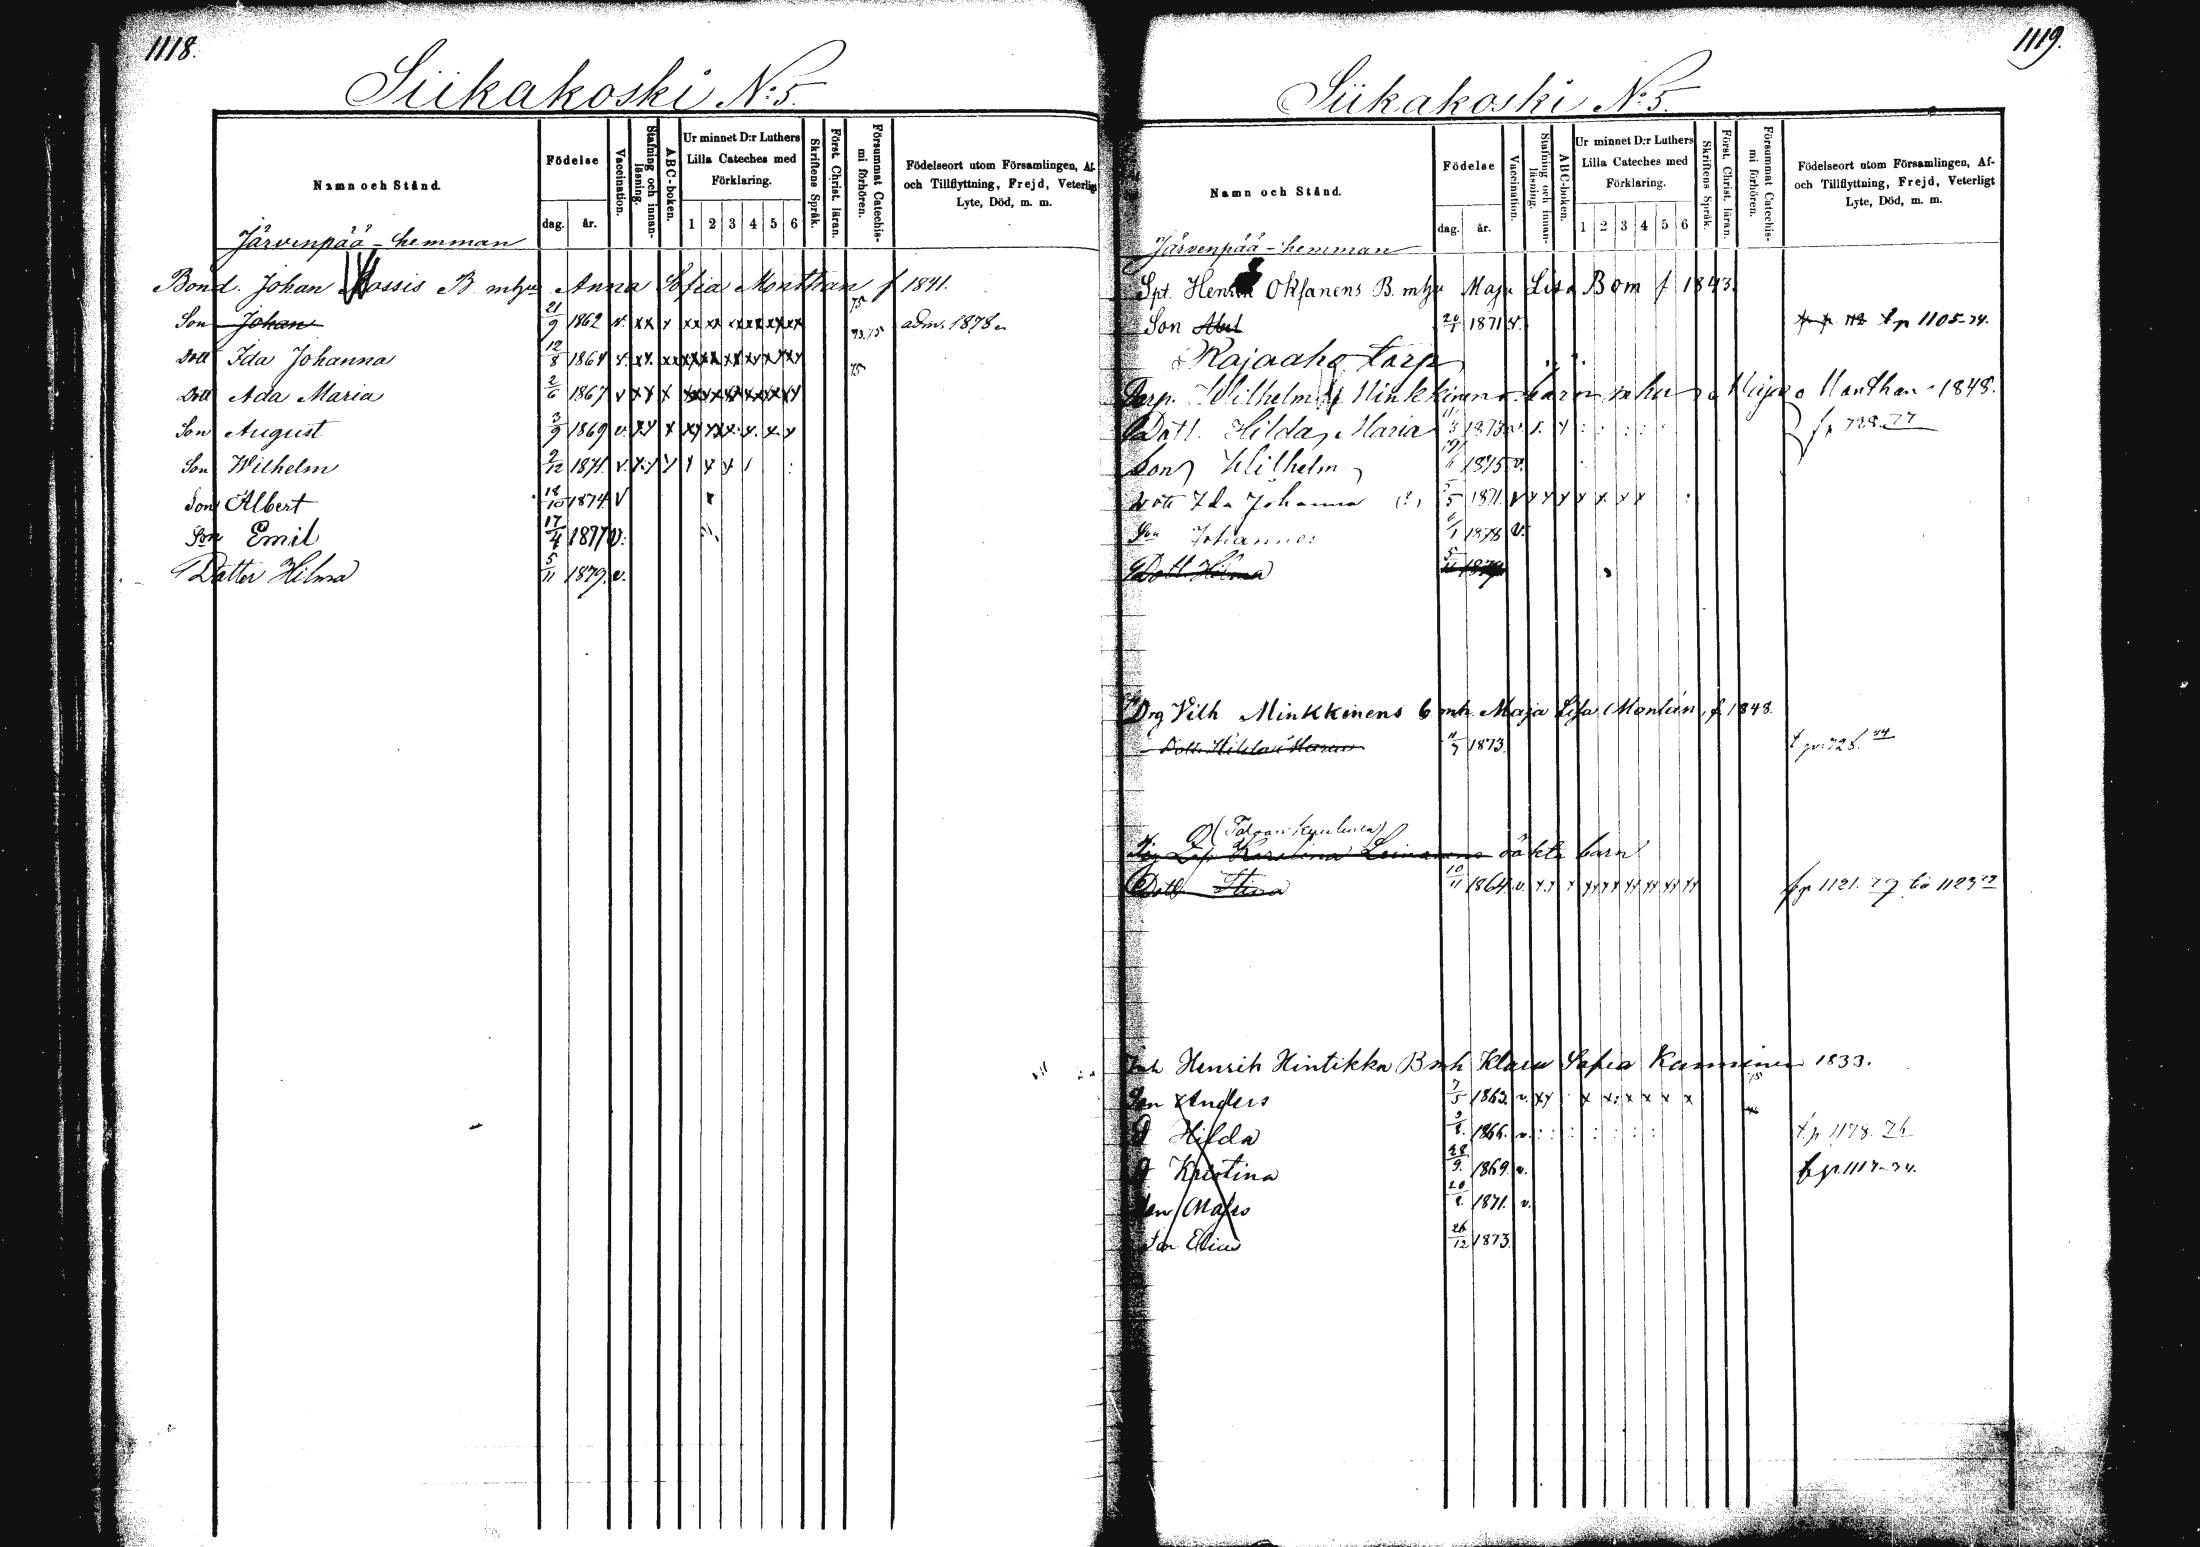 1118.
Siikakoski N:o 5.
Namn och Stånd.
Födelse
dag.
år.
Vaccination.
Stafning och innan-
läsning.
ABC-boken.
Ur minnet D:r Luthers
Lilla Cateches med
Förklaring.
1 2 3 4 5 6
Skriftens Språk.
Först. Christ. läran.
Försummat Catechis-
mi förhören.
Födelseort utom Församlingen, Af-
och Tillflyttning, Frejd, Veterligt
Lyte, Död, m. m.
Järvenpää-hemman
Bond. Johan Kossis B. m hu Anna Sofia Monthan f 1841.
Son Johan 21/9 1862 v. xx x xx xx xx xx xx xx 75 adm. 1878
Dott Ida Johanna 12/8 1864 v. xx.
Dott Ada Maria 2/6 1867 v xx x
Son August 3/9 1869 v. xx x
Son Wilhelm 2/12 1871. v.
Son Albert 18/10 1874. v
Son Emil 17/4 1877 v.
Dotter Hilma 5/11 1879. v.
1119.
Siikakoski N:o 5.
Namn och Stånd.
Födelse
dag.
år.
Vaccination.
Stafning och innan-
läsning.
ABC-boken.
Ur minnet D:r Luthers
Lilla Cateches med
Förklaring.
1 2 3 4 5 6
Skriftens Språk.
Först. Christ. läran.
Försummat Catechis-
mi förhören.
Födelseort utom Församlingen, Af-
och Tillflyttning, Frejd, Veterligt
Lyte, Död, m. m.
Järvenpää-hemman
Spt. Henrik Oksanens B. m hu Maja Lisa Bom f 1843.
Son Abel 1871 v. t p 1105-74.
Kajaaho torp
Torp. Wilhelm Minkkinens barn m hu Maja Monthan 1848.
Dott. Hilda Maria 1873 v. fr 728.77
Son Wilhelm 1875 v.
Dott Ida Johanna (?) 1871. v x x x x x x
Son Johannes 1878 v.
Dott Hilma 5/11 1879
Drg Vilh Minkkinens b mh. Maja Lisa Montén, f 1848.
Dott. Hilda Maria 1873. t p. 728.
Karolina oäkta barn
Dott Stina 10/11 1864. v. x x x xx xx xx xx xx xx fr 1121. 77 to 1123
Inh Henrik Hintikka B mh Klara Sofia 1833.
Son Anders 7/5 1863. v. xx x x x x x x
D Hilda 1866. v. t. p 1178. 76
D Kristina 28/9. 1869. v. t p. 1117-74.
Son Mats 1871. v.
Son Elias 26/12 1873.